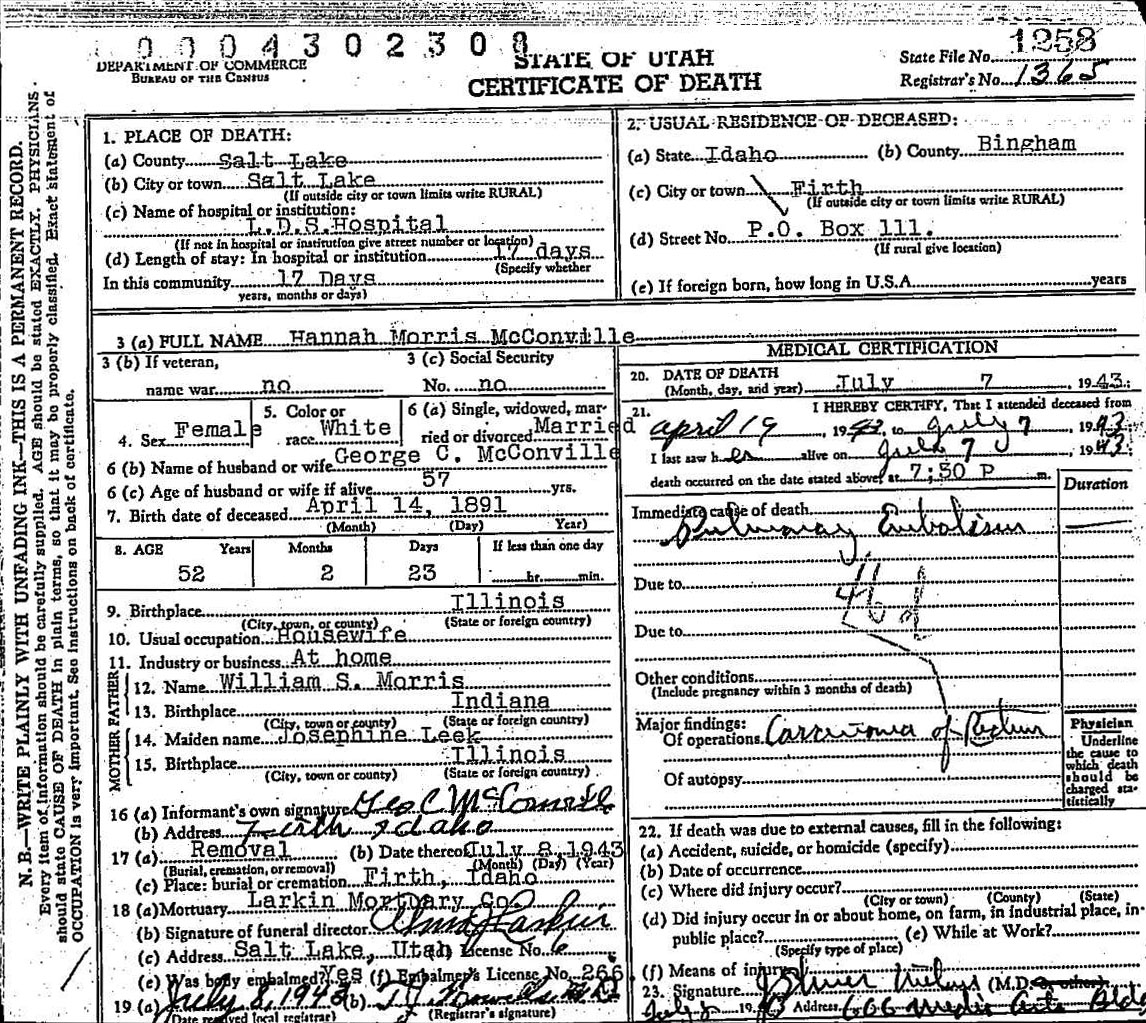 0004302300
DEPARTMENT OF COMMERCE
BUREAU OF THE CENSUS
STATE OF UTAH
CERTIFICATE OF DEATH
State File No. 1258
Registrar's No. 1365
N. B.—WRITE PLAINLY WITH UNFADING INK—THIS IS A PERMANENT RECORD.
Every item of information should be carefully supplied. AGE should be stated EXACTLY. PHYSICIANS
should state CAUSE OF DEATH in plain terms, so that it may be properly classified. Exact statement of
OCCUPATION is very important. See instructions on back of certificate.
1. PLACE OF DEATH:
(a) County Salt Lake
(b) City or town Salt Lake
(If outside city or town limits write RURAL)
(c) Name of hospital or institution:
L.D.S. Hospital
(If not in hospital or institution give street number or location)
(d) Length of stay: In hospital or institution 17 days
(Specify whether
In this community 17 Days
years, months or days)
2. USUAL RESIDENCE OF DECEASED:
(a) State Idaho (b) County Bingham
(c) City or town Firth
(If outside city or town limits write RURAL)
(d) Street No. P.O. Box 111.
(If rural give location)
(e) If foreign born, how long in U.S.A. years
3 (a) FULL NAME Hannah Morris McConville
3 (b) If veteran,
name war no
3 (c) Social Security
No. no
4. Sex Female
5. Color or
race White
6 (a) Single, widowed, mar-
ried or divorced Married
6 (b) Name of husband or wife George C. McConville
6 (c) Age of husband or wife if alive 57 yrs.
7. Birth date of deceased April 14, 1891
(Month) (Day) Year)
8. AGE Years Months Days If less than one day
52 2 23 hr. min.
9. Birthplace Illinois
(City, town, or county) (State or foreign country)
10. Usual occupation Housewife
11. Industry or business At home
FATHER
12. Name William S. Morris
13. Birthplace Indiana
(City, town or county) (State or foreign country)
MOTHER
14. Maiden name Josephine Leek
15. Birthplace Illinois
(City, town or county) (State or foreign country)
16 (a) Informant's own signature Geo C McConville
(b) Address Firth Idaho
17 (a) Removal (b) Date thereof July 8, 1943
(Burial, cremation, or removal) (Month) (Day) (Year)
(c) Place: burial or cremation Firth, Idaho
18 (a) Mortuary Larkin Mortuary Co
(b) Signature of funeral director Larkin
(c) Address Salt Lake, Utah License No. 6
(e) Was body embalmed? Yes (f) Embalmer's License No. 266
19 (a) July 8, 1943 (b)
(Date received local registrar) (Registrar's signature)
MEDICAL CERTIFICATION
20. DATE OF DEATH
(Month, day, and year) July 7, 1943
21. I HEREBY CERTIFY, That I attended deceased from
April 19, 1943, to July 7, 1943
I last saw her alive on July 7 1943
death occurred on the date stated above, at 7;30 P m.
Duration
Immediate cause of death
Pulmonary Embolism
Due to
46d
Due to
Other conditions
(Include pregnancy within 3 months of death)
Major findings:
Of operations Carcinoma of Rectum
Of autopsy
Physician
Underline
the cause to
which death
should be
charged sta-
tistically
22. If death was due to external causes, fill in the following:
(a) Accident, suicide, or homicide (specify)
(b) Date of occurrence
(c) Where did injury occur?
(City or town) (County) (State)
(d) Did injury occur in or about home, on farm, in industrial place, in
public place? (e) While at Work?
(Specify type of place)
(f) Means of injury
23. Signature (M.D. or other)
July 8 1943 Address 606 Medic Arts Bldg